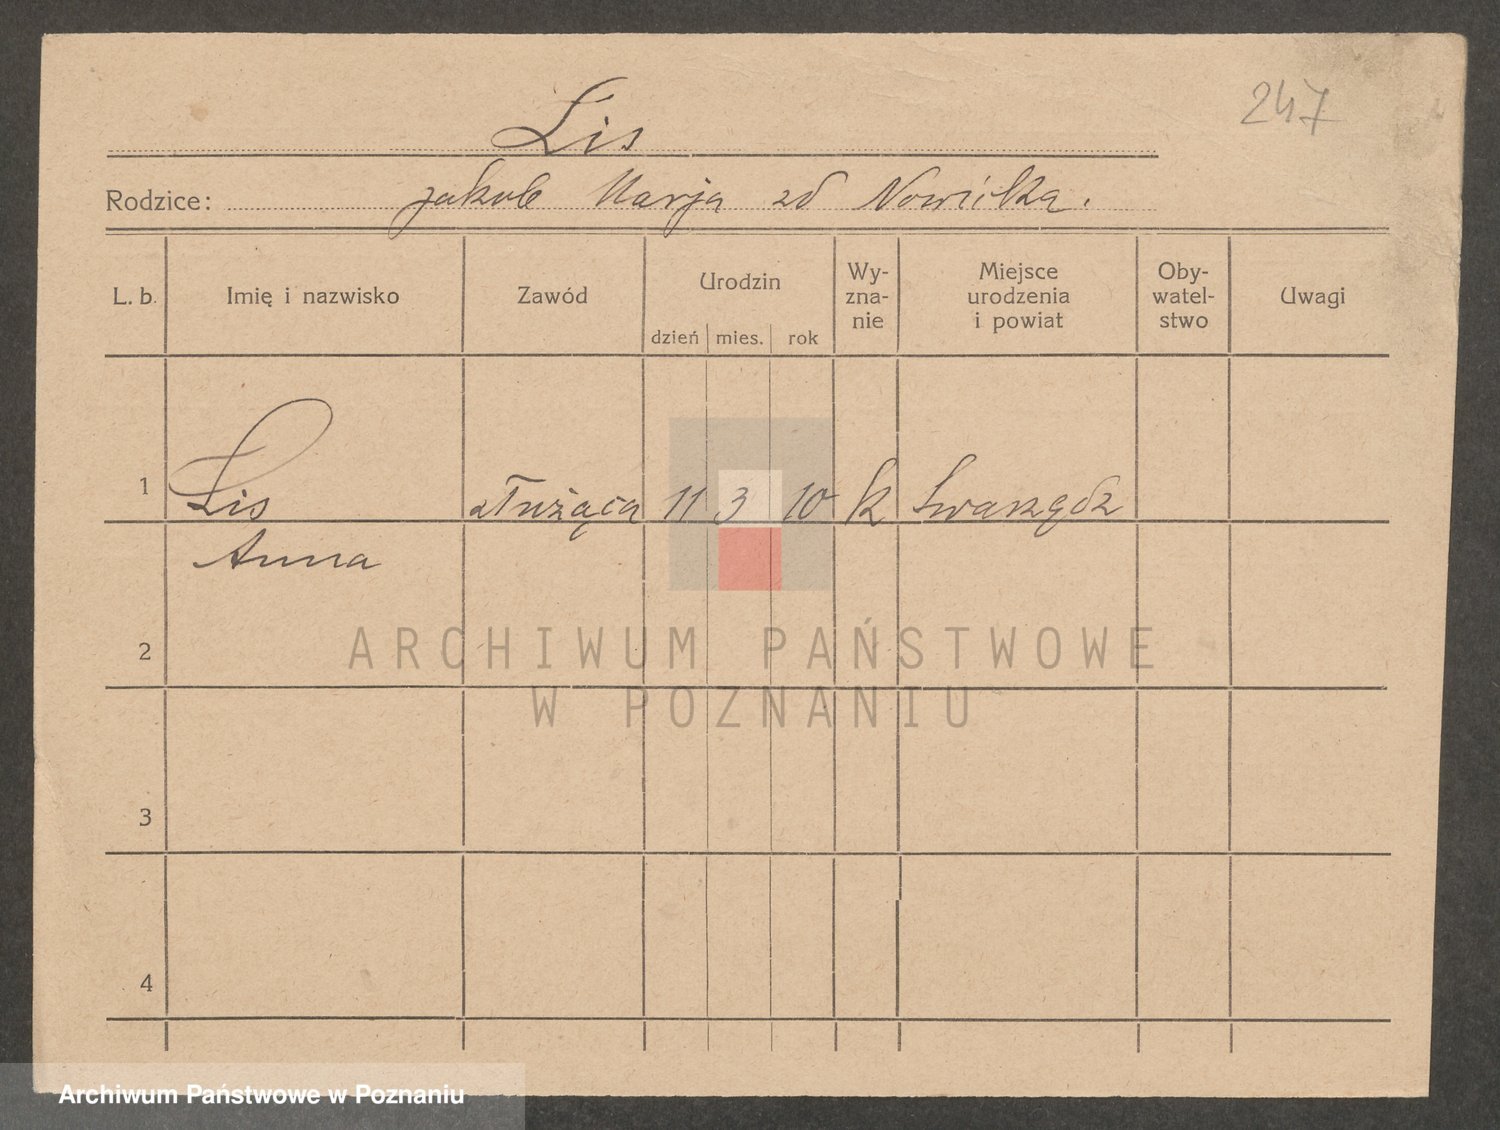 247
Lis
Rodzice: Jakub Marja zd Nowicka.
L. b. Imię i nazwisko Zawód Urodzin dzień mies. rok Wy-zna-nie Miejsce urodzenia i powiat Oby-watel-stwo Uwagi
1 Lis służąca 11 3 10 k Swarzędz
Anna
2
3
4
ARCHIWUM PAŃSTWOWE
W POZNANIU
Archiwum Państwowe w Poznaniu